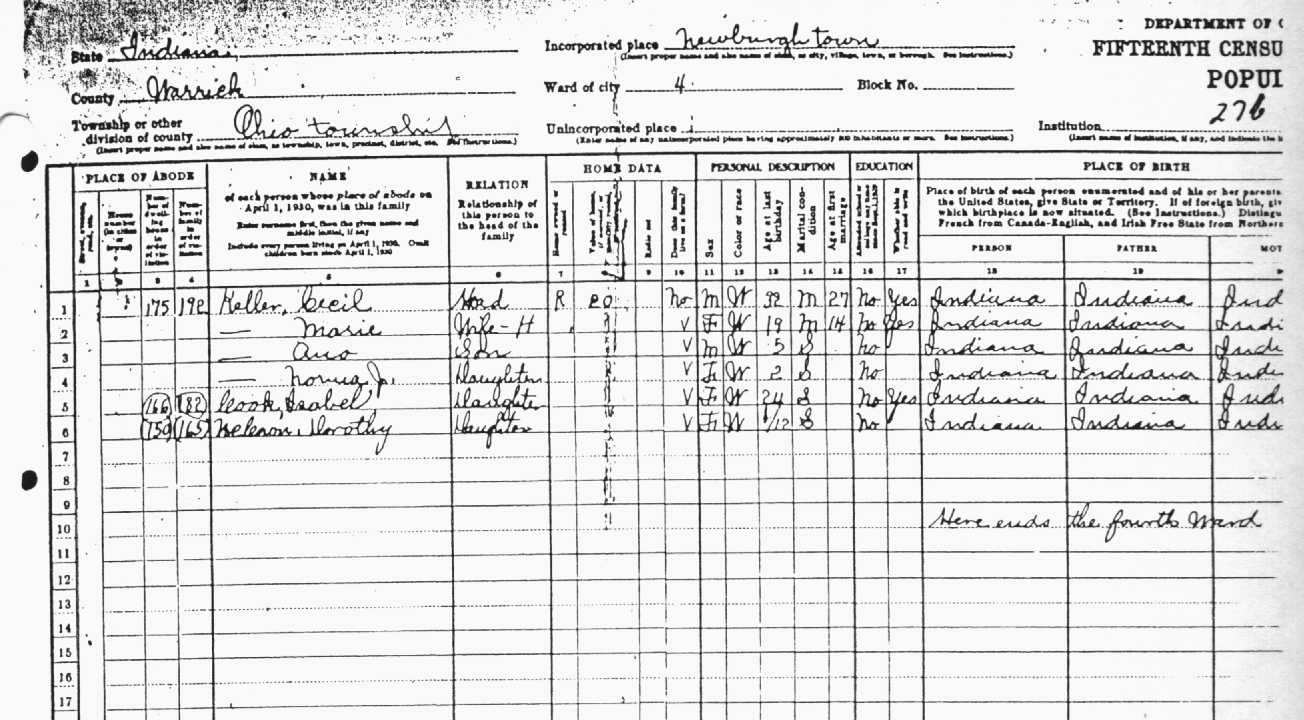 DEPARTMENT OF C
State Indiana Incorporated place Newburgh town FIFTEENTH CENSU
(Insert proper name and also name of class, as city, village, town, or borough. See Instructions.)
POPUL
County Warrick Ward of city 4 Block No.
276
Township or other
division of county Ohio township Unincorporated place Institution
(Insert proper name and also name of class, as township, town, precinct, district, etc. See Instructions.) (Enter name of any unincorporated place having approximately 500 inhabitants or more. See Instructions.) (Insert name of institution, if any, and indicate the
PLACE OF ABODE NAME RELATION HOME DATA PERSONAL DESCRIPTION EDUCATION PLACE OF BIRTH
of each person whose place of abode on
April 1, 1930, was in this family
Enter surname first, then the given name and
middle initial, if any
Include every person living on April 1, 1930. Omit
children born since April 1, 1930
Relationship of
this person to
the head of the
family
Place of birth of each person enumerated and of his or her parents
the United States, give State or Territory. If of foreign birth, giv
which birthplace is now situated. (See Instructions.) Distingu
French from Canada-English, and Irish Free State from Northern
House
number
(in cities
or
towns)
Num-
ber of
dwell-
ing
house in
order
of vis-
itation
Num-
ber of
family
in
order
of vis-
itation
Home owned or rented
Radio set
Does this family live on a farm?
Sex
Color or race
Age at last birthday
Marital con-
dition
Age at first marriage
Whether able to read and write
PERSON FATHER MOT
1 2 3 4 5 6 7 8 9 10 11 12 13 14 15 16 17 18 19
1 175 192 Keller, Cecil Head R 20 No M W 32 M 27 No Yes Indiana Indiana Ind
2 — Marie Wife-H V F W 19 M 14 No Yes Indiana Indiana Indi
3 — Son V M W 5 S No Indiana Indiana Inde
4 — Norma J. Daughter V F W 2 S No Indiana Indiana Inde
5 166 182 Cook, Isabel Daughter V F W 24 S No Yes Indiana Indiana Indi
6 150 165 Dorothy Daughter V F W /12 S No Indiana Indiana Indi
7
8
9
10 Here ends the fourth Ward
11
12
13
14
15
16
17